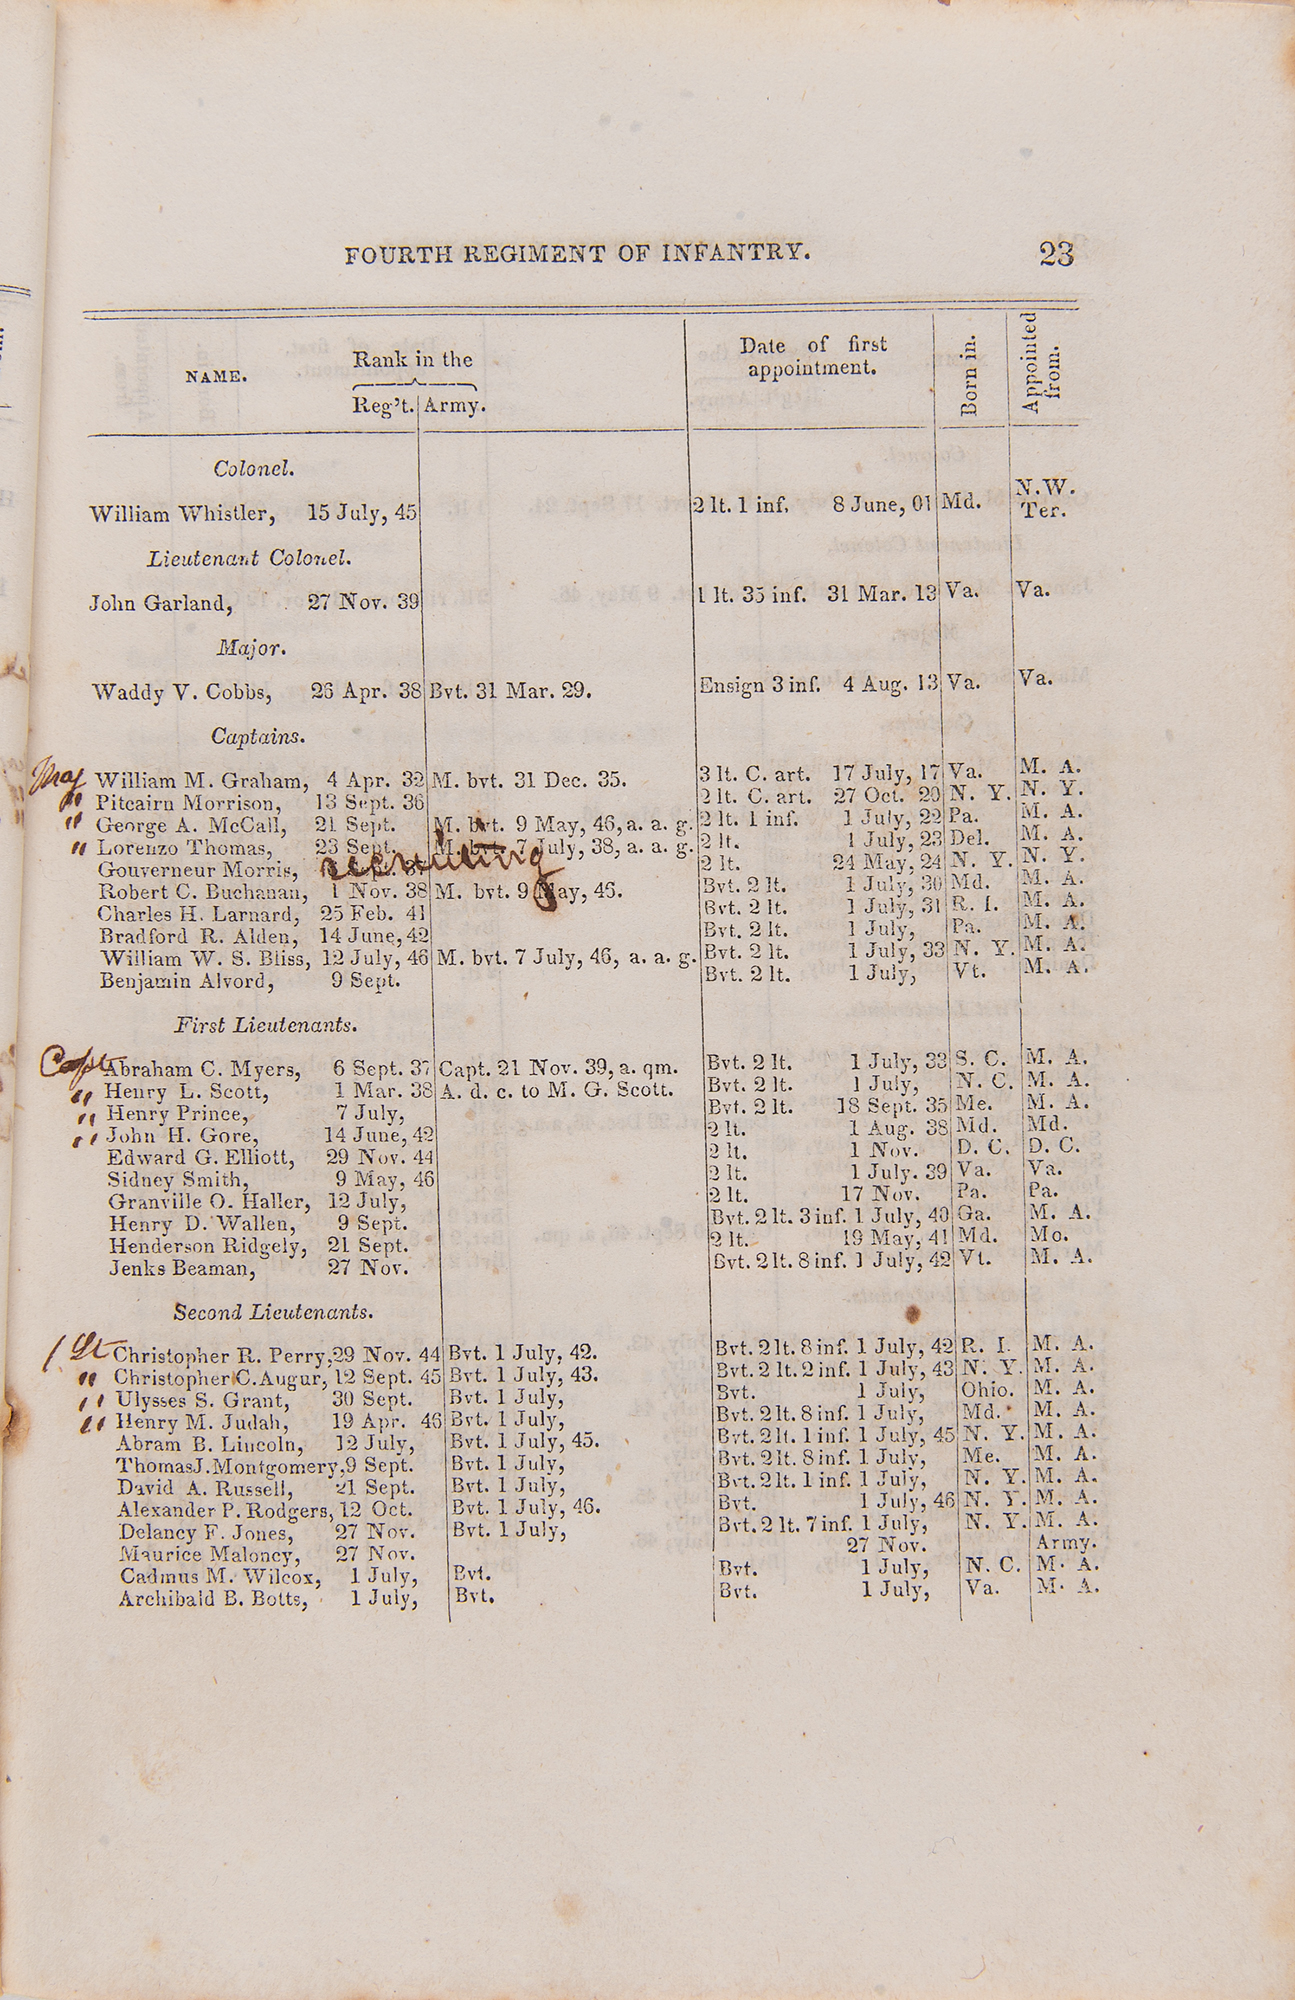 FOURTH REGIMENT OF INFANTRY. 23
NAME. Rank in the Date of first appointment. Born in. Appointed from.
Reg't. Army.
Colonel.
William Whistler, 15 July, 45 2 lt. 1 inf. 8 June, 01 Md. N.W. Ter.
Lieutenant Colonel.
John Garland, 27 Nov. 39 1 lt. 35 inf. 31 Mar. 13 Va. Va.
Major.
Waddy V. Cobbs, 26 Apr. 38 Bvt. 31 Mar. 29. Ensign 3 inf. 4 Aug. 13 Va. Va.
Captains.
Maj William M. Graham, 4 Apr. 32 M. bvt. 31 Dec. 35. 3 lt. C. art. 17 July, 17 Va. M. A.
" Pitcairn Morrison, 13 Sept. 36 2 lt. C. art. 27 Oct. 20 N. Y. N. Y.
" George A. McCall, 21 Sept. M. bvt. 9 May, 46, a. a. g. 2 lt. 1 inf. 1 July, 22 Pa. M. A.
" Lorenzo Thomas, 23 Sept. M. bvt. 7 July, 38, a. a. g. 2 lt. 1 July, 23 Del. M. A.
Gouverneur Morris, recruiting 2 lt. 24 May, 24 N. Y. N. Y.
Robert C. Buchanan, 1 Nov. 38 M. bvt. 9 May, 46. Bvt. 2 lt. 1 July, 30 Md. M. A.
Charles H. Larnard, 25 Feb. 41 Bvt. 2 lt. 1 July, 31 R. I. M. A.
Bradford R. Alden, 14 June, 42 Bvt. 2 lt. 1 July, Pa. M. A.
William W. S. Bliss, 12 July, 46 M. bvt. 7 July, 46, a. a. g. Bvt. 2 lt. 1 July, 33 N. Y. M. A.
Benjamin Alvord, 9 Sept. Bvt. 2 lt. 1 July, Vt. M. A.
First Lieutenants.
Capt Abraham C. Myers, 6 Sept. 37 Capt. 21 Nov. 39, a. qm. Bvt. 2 lt. 1 July, 33 S. C. M. A.
" Henry L. Scott, 1 Mar. 38 A. d. c. to M. G. Scott. Bvt. 2 lt. 1 July, N. C. M. A.
" Henry Prince, 7 July, Bvt. 2 lt. 18 Sept. 35 Me. M. A.
" John H. Gore, 14 June, 42 2 lt. 1 Aug. 38 Md. Md.
Edward G. Elliott, 29 Nov. 44 2 lt. 1 Nov. D. C. D. C.
Sidney Smith, 9 May, 46 2 lt. 1 July. 39 Va. Va.
Granville O. Haller, 12 July, 2 lt. 17 Nov. Pa. Pa.
Henry D. Wallen, 9 Sept. Bvt. 2 lt. 3 inf. 1 July, 40 Ga. M. A.
Henderson Ridgely, 21 Sept. 2 lt. 19 May, 41 Md. Mo.
Jenks Beaman, 27 Nov. Bvt. 2 lt. 8 inf. 1 July, 42 Vt. M. A.
Second Lieutenants.
1 Lt Christopher R. Perry, 29 Nov. 44 Bvt. 1 July, 42. Bvt. 2 lt. 8 inf. 1 July, 42 R. I. M. A.
" Christopher C. Augur, 12 Sept. 45 Bvt. 1 July, 43. Bvt. 2 lt. 2 inf. 1 July, 43 N. Y. M. A.
" Ulysses S. Grant, 30 Sept. Bvt. 1 July, Bvt. 1 July, Ohio. M. A.
" Henry M. Judah, 19 Apr. 46 Bvt. 1 July, Bvt. 2 lt. 8 inf. 1 July, Md. M. A.
Abram B. Lincoln, 12 July, Bvt. 1 July, 45. Bvt. 2 lt. 1 inf. 1 July, 45 N. Y. M. A.
Thomas J. Montgomery, 9 Sept. Bvt. 1 July, Bvt. 2 lt. 8 inf. 1 July, Me. M. A.
David A. Russell, 21 Sept. Bvt. 1 July, Bvt. 2 lt. 1 inf. 1 July, N. Y. M. A.
Alexander P. Rodgers, 12 Oct. Bvt. 1 July, 46. Bvt. 1 July, 46 N. Y. M. A.
Delancy F. Jones, 27 Nov. Bvt. 1 July, Bvt. 2 lt. 7 inf. 1 July, N. Y. M. A.
Maurice Maloney, 27 Nov. 27 Nov. Army.
Cadmus M. Wilcox, 1 July, Bvt. Bvt. 1 July, N. C. M. A.
Archibald B. Botts, 1 July, Bvt. Bvt. 1 July, Va. M. A.